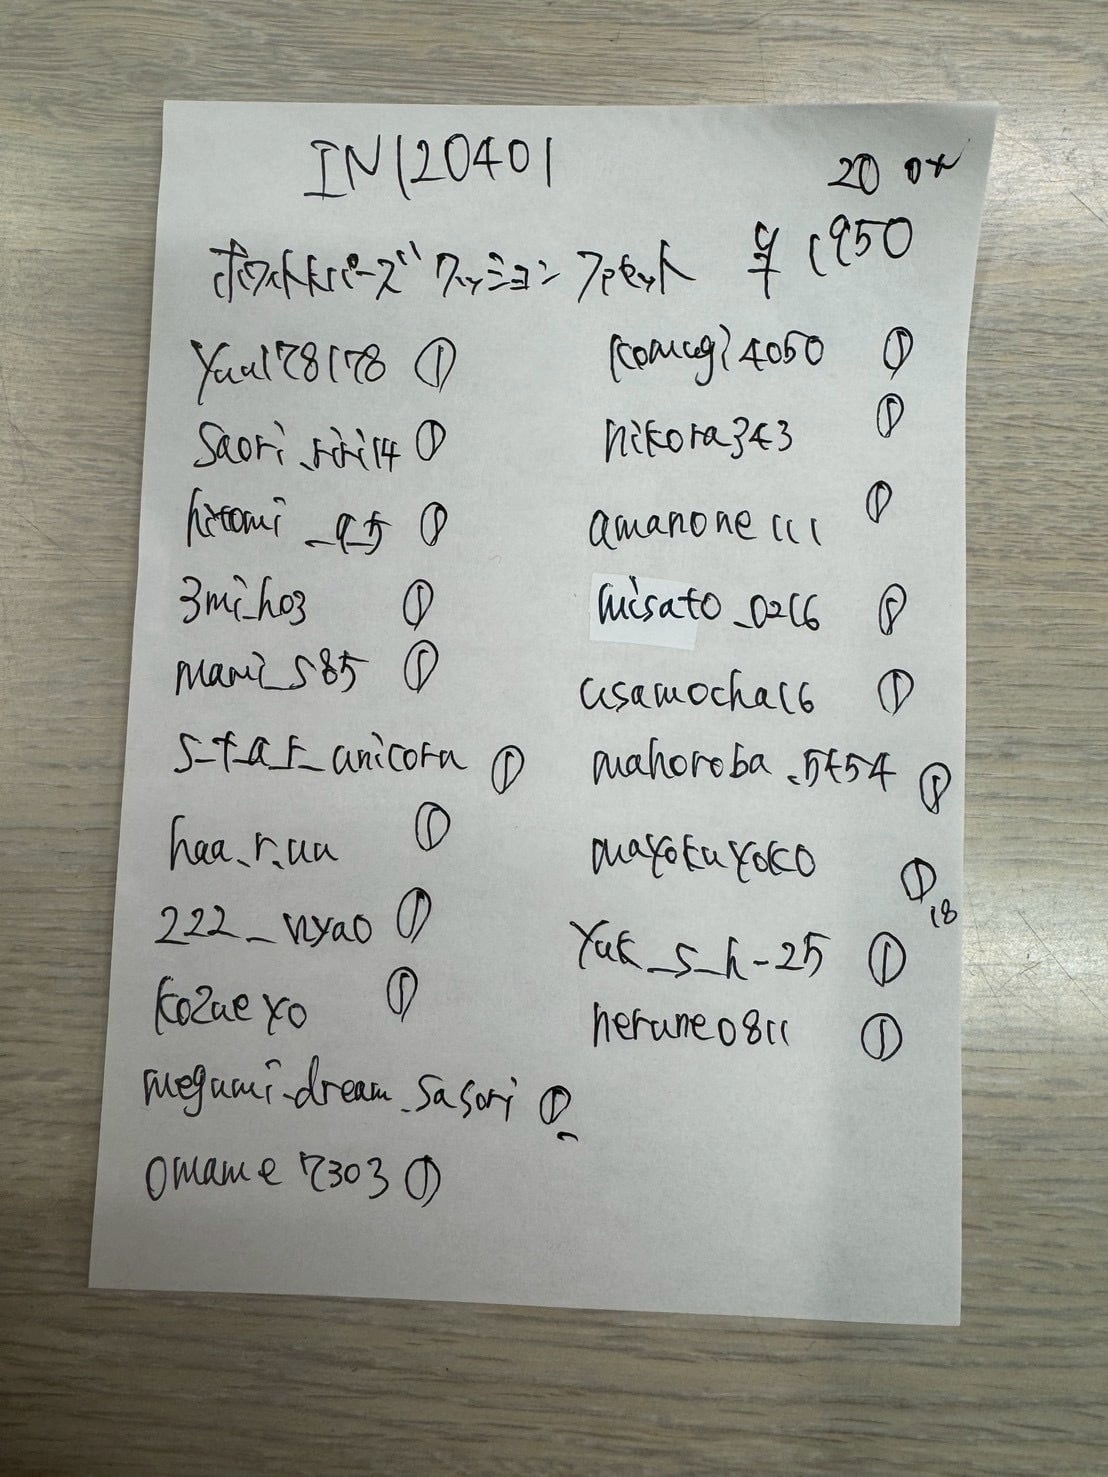 IN120401
20 ox
ポケットベアーズ クッション ファセット ¥1950
yuu178178 ①
saori_riri14 ①
hitomi_9_5 ①
3mi_ho3 ①
mami_s85 ①
s_t_a_r_unicorn ①
haa.r.uu ①
222_nyao ①
kozueyo ①
megumi.dream.sasori ①
omame7303 ①
komugi4050 ①
nikora343 ①
amanone111 ①
misato_0216 ①
usamocha16 ①
mahoroba.5454 ①
mayokuyoko ①
18
yuk_s_h_25 ①
nerune0811 ①